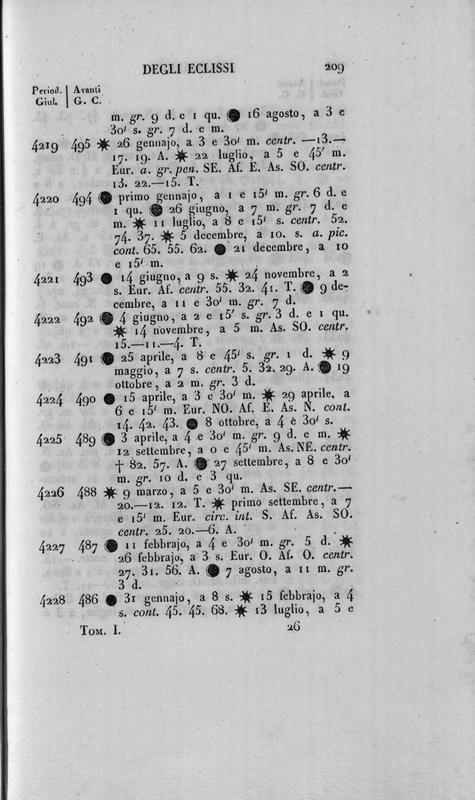 DEGLI ECLISSI 209
Period. | Avanti
Giul. | G. C.
m. gr. 9 d. e 1 qu. ● 16 agosto, a 3 e
30' s. gr. 7 d. e m.
4219 495 ✷ 26 gennajo, a 3 e 30' m. centr. —13.—
17. 19. A. ✷ 22 luglio, a 5 e 45' m.
Eur. a. gr. pen. SE. Af. E. As. SO. centr.
13. 22.—15. T.
4220 494 ● primo gennajo, a 1 e 15' m. gr. 6 d. e
1 qu. ● 26 giugno, a 7 m. gr. 7 d. e
m. ✷ 11 luglio, a 8 e 15' s. centr. 52.
74. 37. ✷ 5 decembre, a 10. s. a. pic.
cont. 65. 55. 62. ● 21 decembre, a 10
e 15' m.
4221 493 ● 14 giugno, a 9 s. ✷ 24 novembre, a 2
s. Eur. Af. centr. 55. 32. 41. T. ● 9 de-
cembre, a 11 e 30' m. gr. 7 d.
4222 492 ● 4 giugno, a 2 e 15' s. gr. 3 d. e 1 qu.
✷ 14 novembre, a 5 m. As. SO. centr.
15.—11.—4. T.
4223 491 ● 25 aprile, a 8 e 45' s. gr. 1 d. ✷ 9
maggio, a 7 s. centr. 5. 32. 29. A. ● 19
ottobre, a 2 m. gr. 3 d.
4224 490 ● 15 aprile, a 3 e 30' m. ✷ 29 aprile, a
6 e 15' m. Eur. NO. Af. E. As. N. cont.
14. 42. 43. ● 8 ottobre, a 4 e 30' s.
4225 489 ● 3 aprile, a 4 e 30' m. gr. 9 d. e m. ✷
12 settembre, a 0 e 45' m. As. NE. centr.
† 82. 57. A. ● 27 settembre, a 8 e 30'
m. gr. 10 d. e 3 qu.
4226 488 ✷ 9 marzo, a 5 e 30' m. As. SE. centr.—
20.—12. 12. T. ✷ primo settembre, a 7
e 15' m. Eur. circ. int. S. Af. As. SO.
centr. 25. 20.—6. A.
4227 487 ● 11 febbrajo, a 4 e 30' m. gr. 5 d. ✷
26 febbrajo, a 3 s. Eur. O. Af. O. centr.
27. 31. 56. A. ● 7 agosto, a 11 m. gr.
3 d.
4228 486 ● 31 gennajo, a 8 s. ✷ 15 febbrajo, a 4
s. cont. 45. 45. 68. ✷ 13 luglio, a 5 e
Tom. I. 26